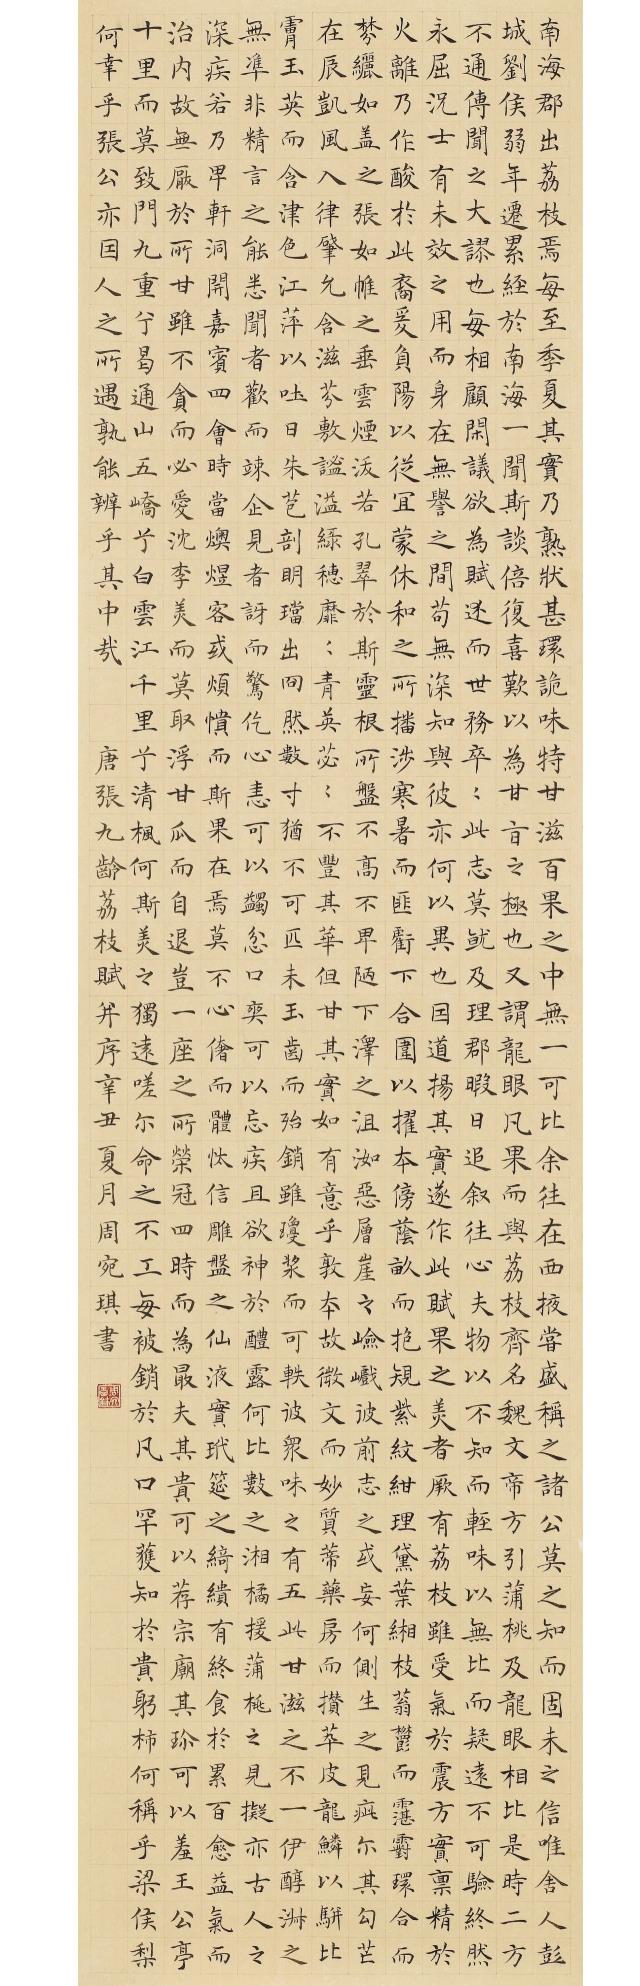 南海郡出荔枝焉每至季夏其實乃熟狀甚環詭味特甘滋百果之中無一可比余往在西掖嘗盛稱之諸公莫之知而固未之信唯舍人彭
城劉侯弱年遷累經於南海一聞斯談倍復喜歎以為甘旨之極也又謂龍眼凡果而與荔枝齊名魏文帝方引蒲桃及龍眼相比是時二方
不通傳聞之大謬也每相顧閑議欲為賦述而世務卒〻此志莫就及理郡暇日追叙往心夫物以不知而輕味以無比而疑遠不可驗終然
永屈況士有未效之用而身在無譽之間苟無深知與彼亦何以異也因道揚其實遂作此賦果之美者厥有荔枝雖受氣於震方實稟精於
火離乃作酸於此裔爰負陽以從宜蒙休和之所播涉寒暑而匪虧下合圍以擢本傍蔭畝而抱規紫紋紺理黛葉緗枝蓊鬱而霮䨴環合而
棼纚如盖之張如帷之垂雲煙沃若孔翠於斯靈根所盤不高不卑陋下澤之沮洳惡層崖之嶮巇彼前志之或妄何側生之見疵尔其勾芒
在辰凱風入律肇允含滋芬敷謐溢綠穗靡〻青英苾〻不豐其華但甘其實如有意乎敦本故微文而妙質蒂藥房而攅萃皮龍鱗以駢比
膚玉英而含津色江萍以吐日朱苞剖明璫出冏然數寸猶不可匹未玉齒而殆銷雖瓊漿而可軼彼眾味之有五此甘滋之不一伊醇淑之
無準非精言之能悉聞者歡而竦企見者訝而驚仡心恚可以蠲忿口爽可以忘疾且欲神於醴露何比數之湘橘援蒲桃之見擬亦古人之
深疾若乃卑軒洞開嘉賓四會時當燠煜客或煩憒而斯果在焉莫不心侈而體忲信雕盤之仙液實玳筵之綺繢有終食於累百愈益氣而
治內故無厭於所甘雖不貪而必愛沈李美而莫取浮甘瓜而自退豈一座之所榮冠四時而為最夫其貴可以荐宗廟其珍可以羞王公亭
十里而莫致門九重兮曷通山五嶠兮白雲江千里兮清楓何斯美之獨遠嗟尔命之不工每被銷於凡口罕獲知於貴躬柿何稱乎梁侯梨
何幸乎張公亦因人之所遇孰能辨乎其中哉 唐張九齡荔枝賦并序辛丑夏月周宛琪書